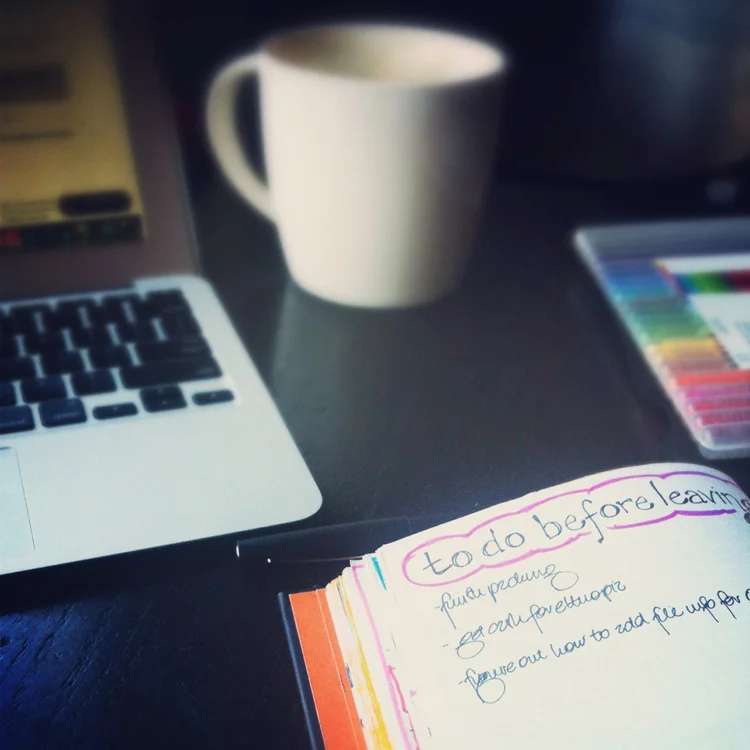 to do before leaving
-finish packing
-get cash for ethiopia
-figure out how to add file info for